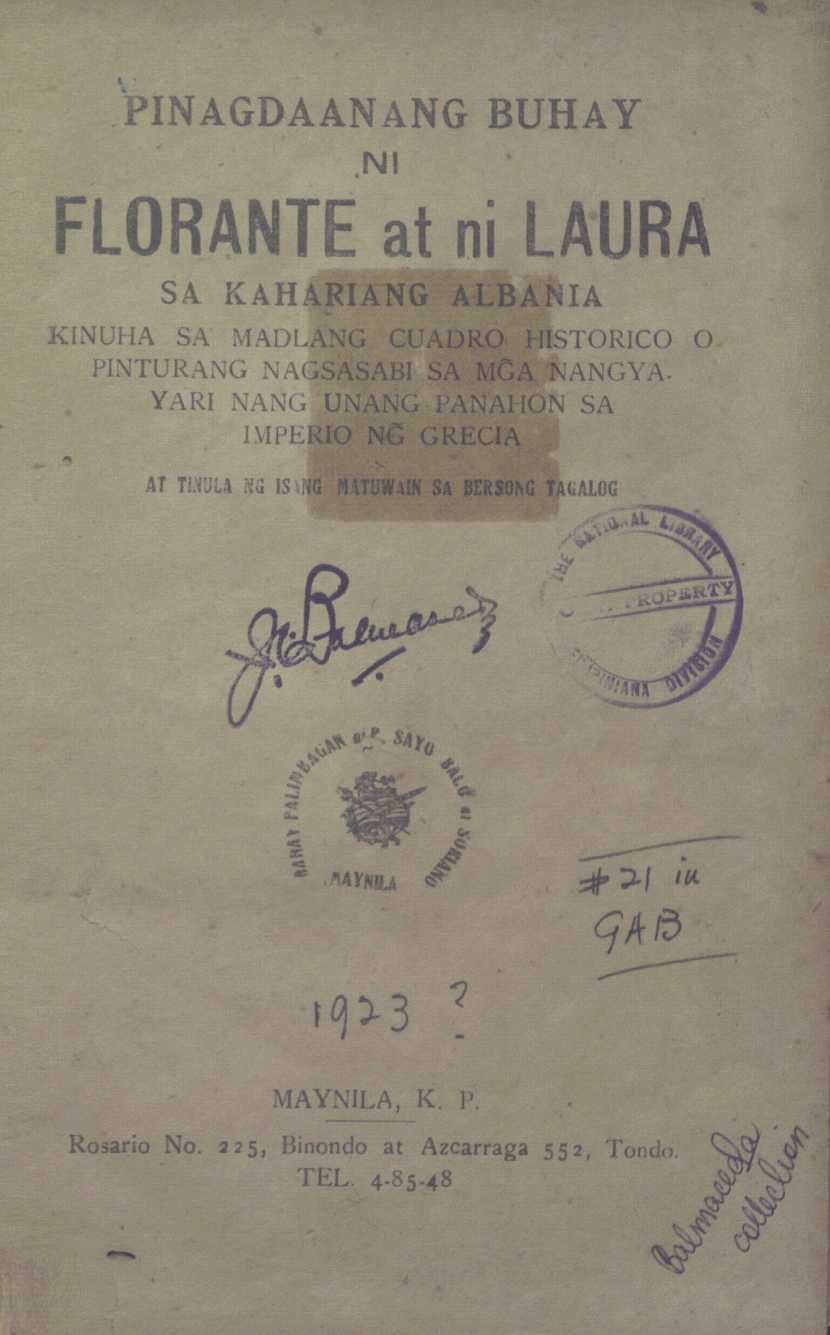 PINAGDAANANG BUHAY
NI
FLORANTE at ni LAURA
SA KAHARIANG ALBANIA
KINUHA SA MADLANG CUADRO HISTORICO O
PINTURANG NAGSASABI SA MG̃A NANGYA-
YARI NANG UNANG PANAHON SA
IMPERIO NG̃ GRECIA
AT TINULA NG ISANG MATUWAIN SA BERSONG TAGALOG
THE NATIONAL LIBRARY
PROPERTY
DIVISION
BAHAY PALIMBAGAN ni P. SAYO BALO ni SORIANO
MAYNILA
#21 in
GAB
1923 ?
MAYNILA, K. P.
Rosario No. 225, Binondo at Azcarraga 552, Tondo.
TEL. 4-85-48
Balmaceda
collection